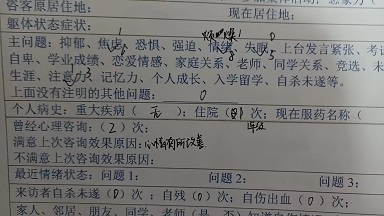 咨客原居住地： 现在居住地：
躯体状态症状：
主问题：抑郁、焦虑、恐惧、强迫、情绪、失眠、上台发言紧张、考试
自卑、学业成绩、恋爱情感、家庭关系、老师、同学关系、竞选、未
生涯、注意力、记忆力、个人成长、入学留学、自杀未遂等。
上面没有注明的其他问题： 0
个人病史：重大疾病（无）；住院（0）次；现在服药名称（
曾经心理咨询：（2）次；
满意上次咨询效果原因：心情有所改善
不满意上次咨询效果原因：
最近情绪状态：问题1： 问题2： 问题3：
来访者自杀未遂（0）次；自残（0）次；自伤出血（0）次；
家人、邻居、朋友、同学、老师（是、否）知道自伤